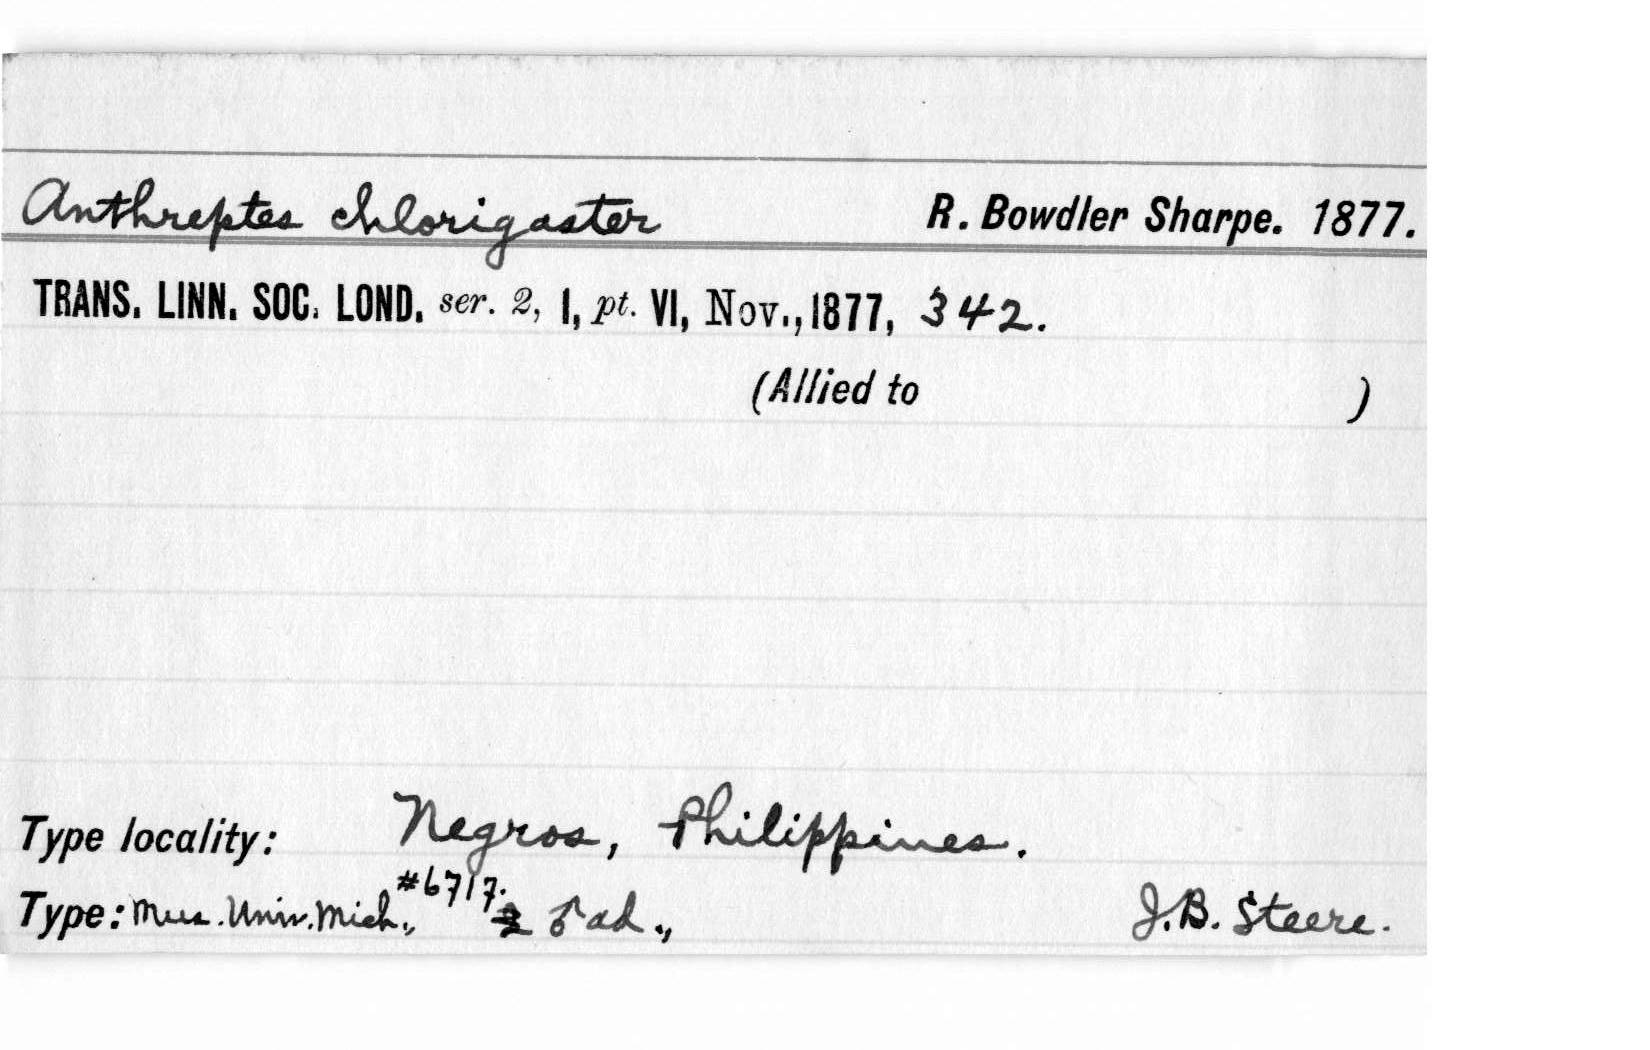 Anthreptes chlorigaster R. Bowdler Sharpe. 1877.
TRANS. LINN. SOC. LOND. ser. 2, I, pt. VI, Nov., 1877, 342.
(Allied to )
Type locality: Negros, Philippines.
Type: Mus. Univ. Mich., #6717. ♂ ad., J.B. Steere.